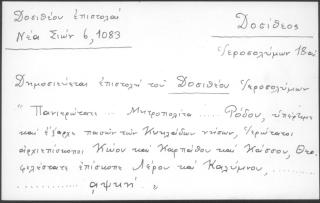 Δοσιθέου ἐπιστολαί
Νέα Σιών 6, 1083
Δοσίθεος
Ἱεροσολύμων 18 αἰ
Δημοσιεύεται ἐπιστολή τοῦ Δοσιθέου Ἱεροσολύμων
"Πανιερώτατε ... Μητροπολῖτα ...... Ρόδου, ὑπέρτιμε
καί ἔξαρχε πασῶν τῶν Κυκλάδων νήσων, Ἱερώτατοι
ἀρχιεπίσκοποι Κώου καί Καρπάθου καί Κάσσου, Θεο-
φιλέστατε ἐπίσκοπε Λέρου καί Καλύμνου, .......
............... αψκή. "